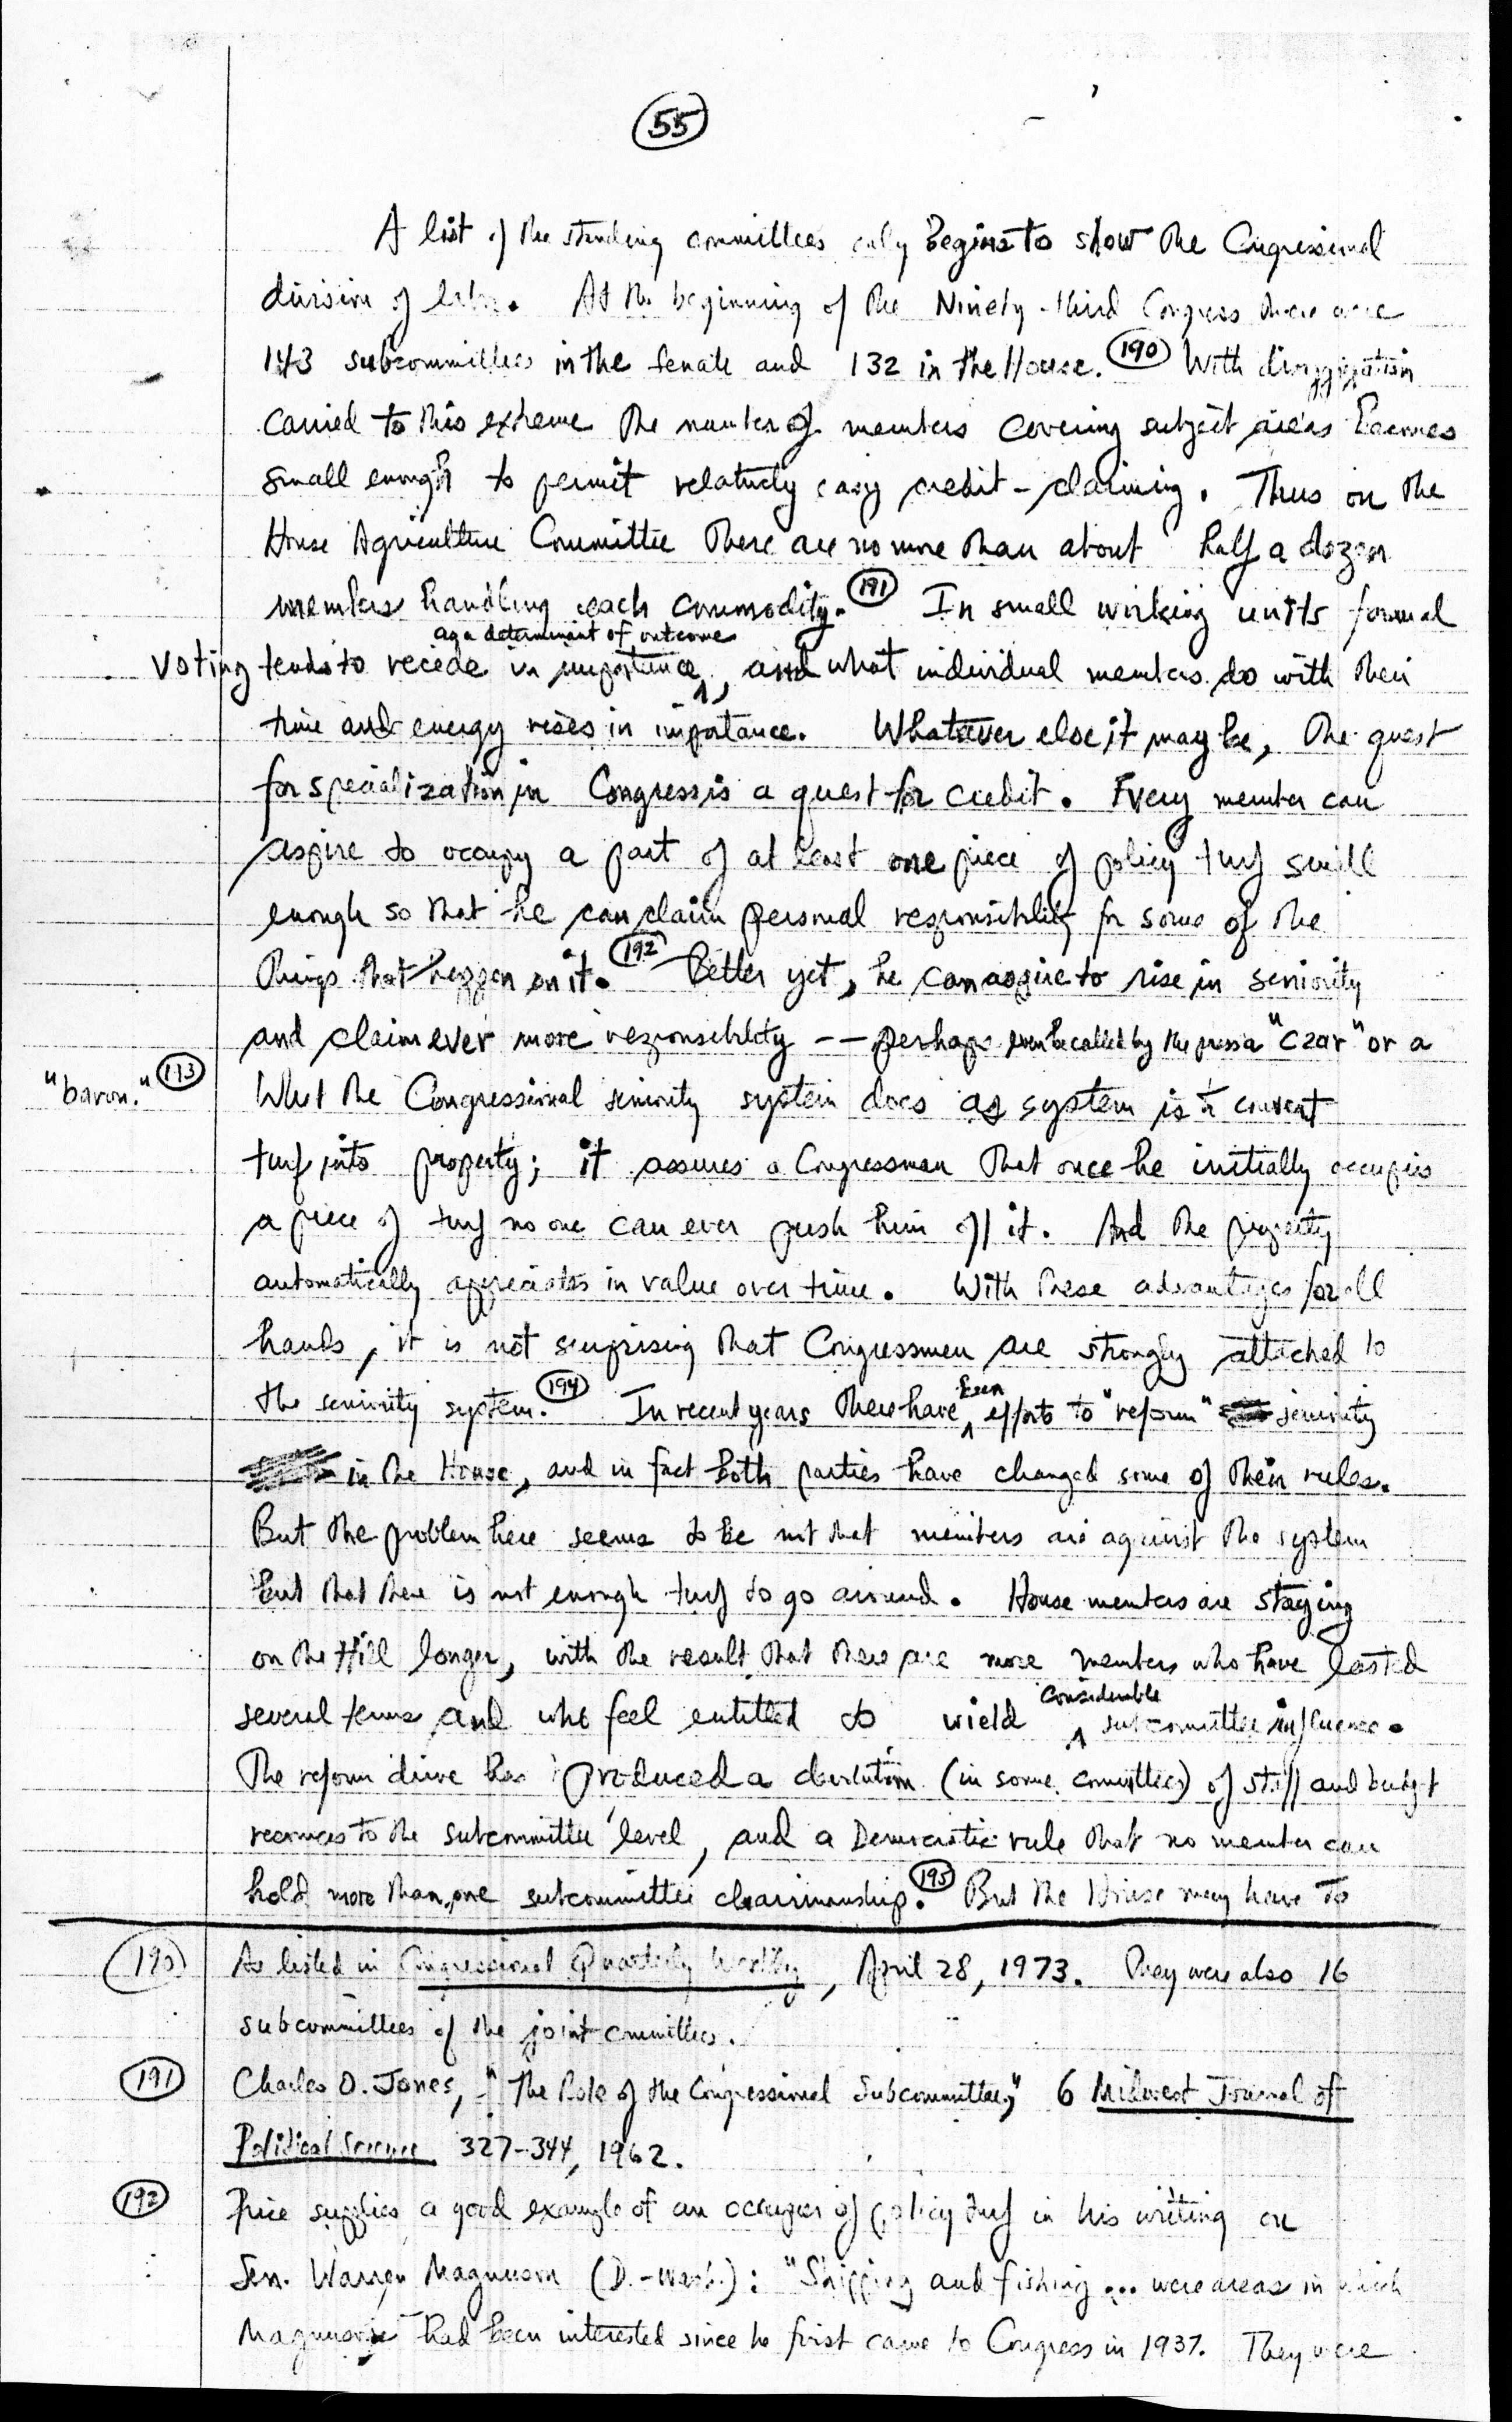 55
A list of the standing committees only begins to show the Congressional
division of labor. At the beginning of the Ninety-third Congress there were
143 subcommittees in the Senate and 132 in the House. (190) With disaggregation
carried to this extreme the number of members covering subject areas becomes
small enough to permit relatively easy credit-claiming. Thus on the
House Agriculture Committee there are no more than about half a dozen
members handling each commodity. (191) In small working units formal
as a determinant of outcome
voting tends to recede in importance, and what individual members do with their
time and energy rises in importance. Whatever else it may be, the quest
for specialization in Congress is a quest for credit. Every member can
aspire to occupy a part of at least one piece of policy turf small
enough so that he can claim personal responsibility for some of the
things that happen on it. (192) Better yet, he can aspire to rise in seniority
and claim ever more responsibility -- perhaps even be called by the press a "czar" or a
"baron." (193) What the Congressional seniority system does as a system is to convert
turf into property; it assures a Congressman that once he initially occupies
a piece of turf no one can ever push him off it. And the property
automatically appreciates in value over time. With these advantages for all
hands, it is not surprising that Congressmen are strongly attached to
the seniority system. (194) In recent years there have been efforts to "reform" seniority
in the House, and in fact both parties have changed some of their rules.
But the problem here seems to be not that members are against the system
but that there is not enough turf to go around. House members are staying
on the Hill longer, with the result that there are more members who have lasted
several terms and who feel entitled to wield considerable subcommittee influence.
The reform drive has produced a devolution (in some committees) of staff and budget
resources to the subcommittee level, and a Democratic rule that no member can
hold more than one subcommittee chairmanship. (195) But the House may have to
(190) As listed in Congressional Quarterly Weekly, April 28, 1973. They were also 16
subcommittees of the joint committees.
(191) Charles O. Jones, "The Role of the Congressional Subcommittee," 6 Midwest Journal of
Political Science 327-344, 1962.
(192) Price supplies a good example of an occupier of policy turf in his writing on
Sen. Warren Magnuson (D.-Wash.): "Shipping and fishing ... were areas in which
Magnuson had been interested since he first came to Congress in 1937. They were